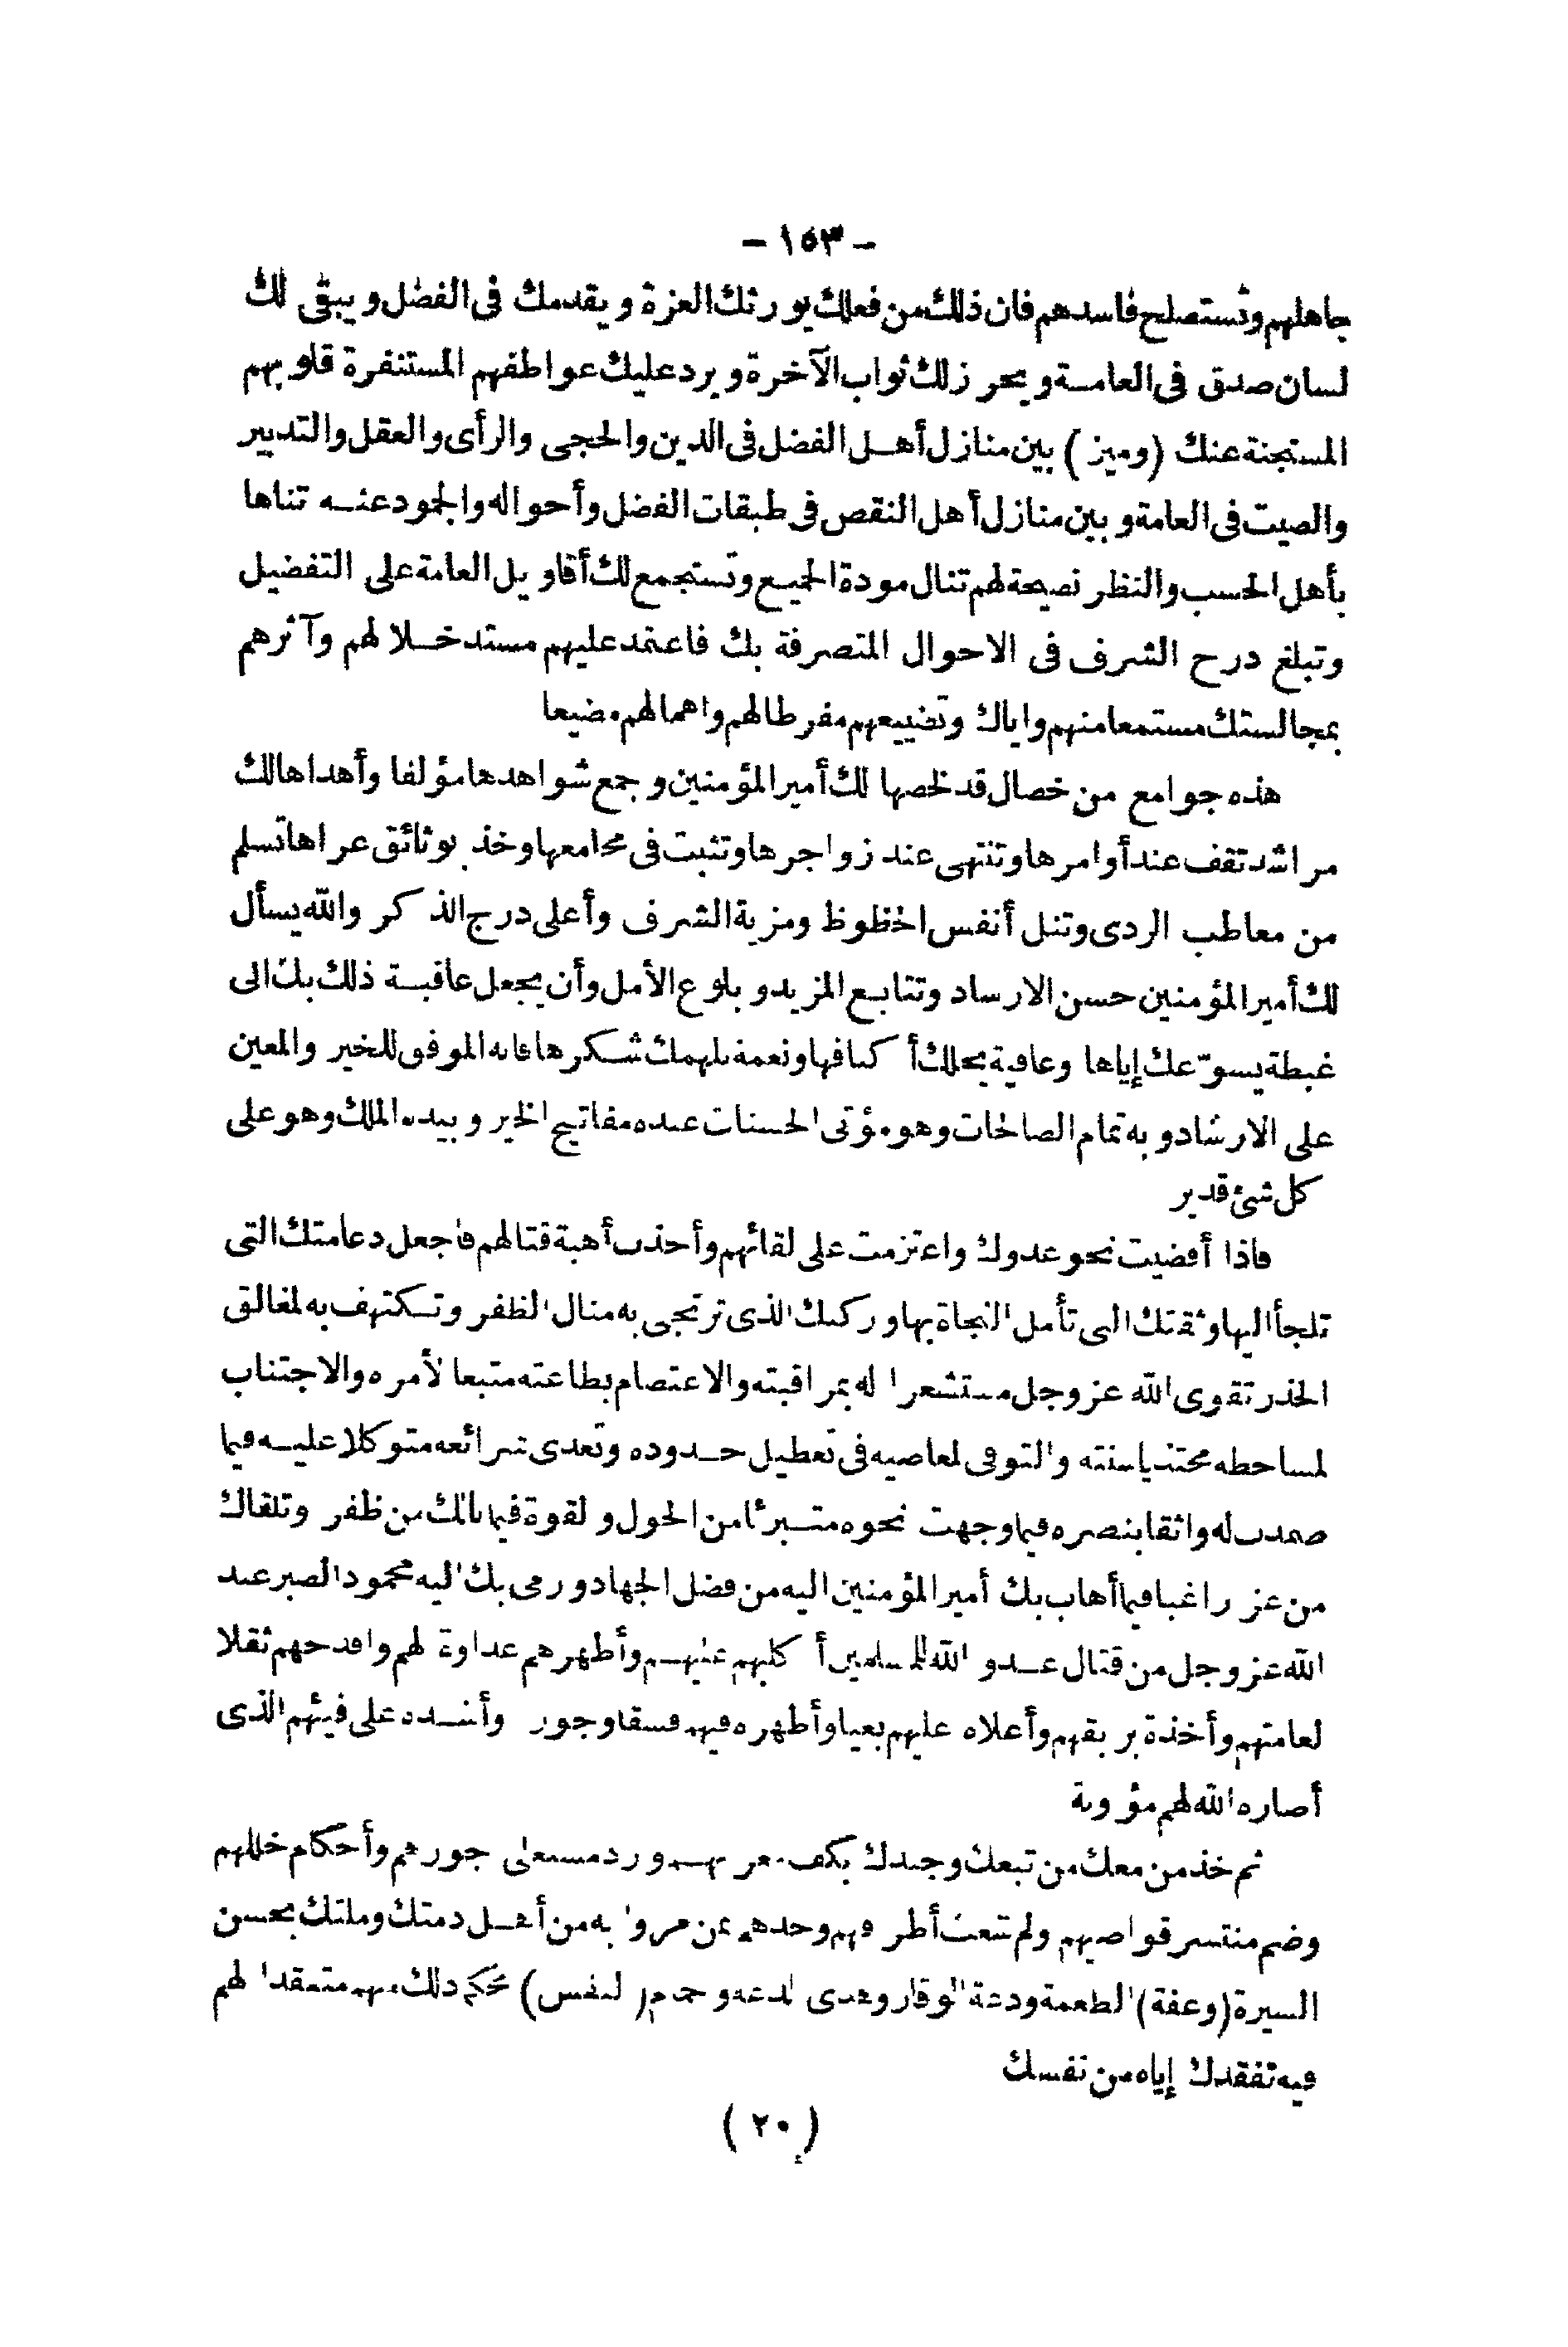 - ١٥٣ -
جاهلهم وتستصلح فاسدهم فان ذلك من فعلك يورثك العزة ويقدمك فى الفضل ويبقى لك
لسان صدق فى العامة ويحرز لك ثواب الآخرة ويرد عليك عواطفهم المستنفرة قلوبهم
المستجنة عنك (وميز) بين منازل أهل الفضل فى الدين والحجى والرأى والعقل والتدبير
والصيت فى العامة وبين منازل أهل النقص فى طبقات الفضل وأحواله والجمود عنه تناها
بأهل الحسب والنظر نصيحة لهم تنال مودة الجميع وتستجمع لك أقاويل العامة على التفضيل
وتبلغ درح الشرف فى الاحوال المتصرفة بك فاعتمد عليهم مستدخلا لهم وآثرهم
بمجالستك مستمعا منهم واياك وتضييعهم مفرطا لهم واهمالهم مضيعا
هذه جوامع من خصال قد لخصها لك أمير المؤمنين وجمع شواهدها مؤلفا وأهداها لك
مراشد تقف عند أوامرها وتنتهى عند زواجرها وتثبت فى مجامعها وخذ بوثائق عراها تسلم
من معاطب الردى وتنل أنفس الحظوظ ومزية الشرف وأعلى درج الذكر والله يسأل
لك أمير المؤمنين حسن الارساد وتتابع المزيد وبلوغ الأمل وأن يجعل عاقبة ذلك بك الى
غبطة يسوّغك إياها وعافية يحلك أكنافها ونعمة يلهمك شكرها فانه الموفق للخير والمعين
على الارشاد وبه تمام الصالحات وهو مؤتى الحسنات عنده مفاتيح الخير وبيده الملك وهو على
كل شئ قدير
فاذا أفضيت نحو عدوك واعتزمت على لقائهم وأخذت أهبة قتالهم فاجعل دعامتك التى
تلجأ اليها وثقتك التى تأمل النجاة بها وركنك الذى ترتجى به منال الظفر وتكتهف به لمغالق
الحذر تقوى الله عز وجل مستشعرا له بمراقبته والاعتصام بطاعته متبعا لأمره والاجتناب
لمساخطه محتذيا سنته والتوقى لمعاصيه فى تعطيل حدوده وتعدى شرائعه متوكلا عليه فيما
صمدت له واثقا بنصره فيما وجهت نحوه متبرئا من الحول والقوة فيما نالك من ظفر وتلقاك
من عز راغبا فيما أهاب بك أمير المؤمنين اليه من فضل الجهاد ورمى بك اليه محمود الصبر عند
الله عز وجل من قتال عدو الله للمسلمين أكلبهم عليهم وأظهرهم عداوة لهم وافدحهم ثقلا
لعامتهم وأخذة بربقهم وأعلاه عليهم بغيا وأظهره فيهم فسقا وجورا وأشده على فيئهم الذى
أصاره الله لهم مؤونة
ثم خذ من معك من تبعك وجندك بكف ورد جورهم وأحكام خللهم
وضم منتشر قواصيهم ولم شعث أطرافهم وحدهم بمن مروا به من أهل ذمتك وملتك بحسن
السيرة (وعفة) الطعمة ودعة الوقار وهدى الدعه وجمام (النفس) محكم ذلك منهم متفقدا لهم
فيه تفقدك إياه من نفسك
(٢٠)